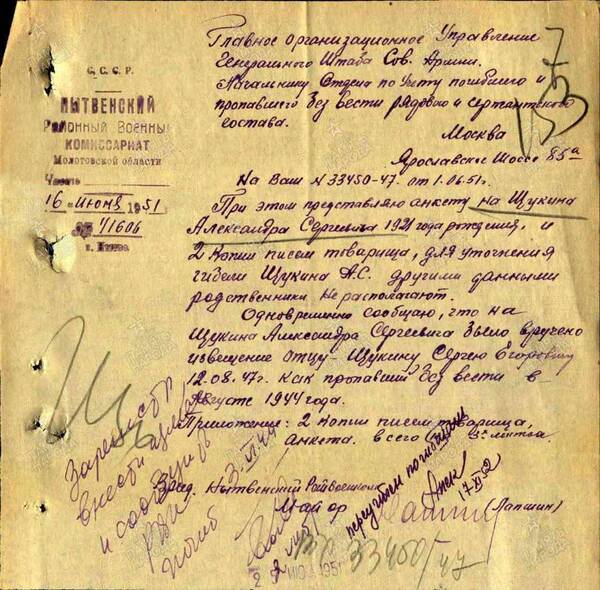 С. С. С. Р.
НЫТВЕНСКИЙ
Районный Военный
КОМИССАРИАТ
Молотовской области
Часть
16 " Июня 1951
№ 4/1606
г. Нытва
Главное организационное Управление
Генерального Штаба Сов. Армии.
Начальнику Отдела по учету погибшего и
пропавшего без вести рядового и сержантского
состава.
Москва
Ярославское Шоссе 85а
На Ваш N 33450-47. от 1.06.51г.
При этом представляю анкету на Щукина
Александра Сергеевича 1921 года рождения, и
2 копии писем товарища, для уточнения
гибели Щукина А.С. другими данными
родственники не располагают.
Одновременно сообщаю, что на
Щукина Александра Сергеевича было вручено
извещение отцу - Щукину Сергею Егоровичу
12.08.47г. как пропавший без вести в
Августе 1944 года.
Приложение: 2 копии писем товарища,
анкета. всего листов.
Нытвенский Райвоенком
Майор
(Лапшин)
внести
и сообщить
РВК
погиб 3.VI.44
переучтен погибшим
17 VI 52
2 ИЮЛ 195
33450/47